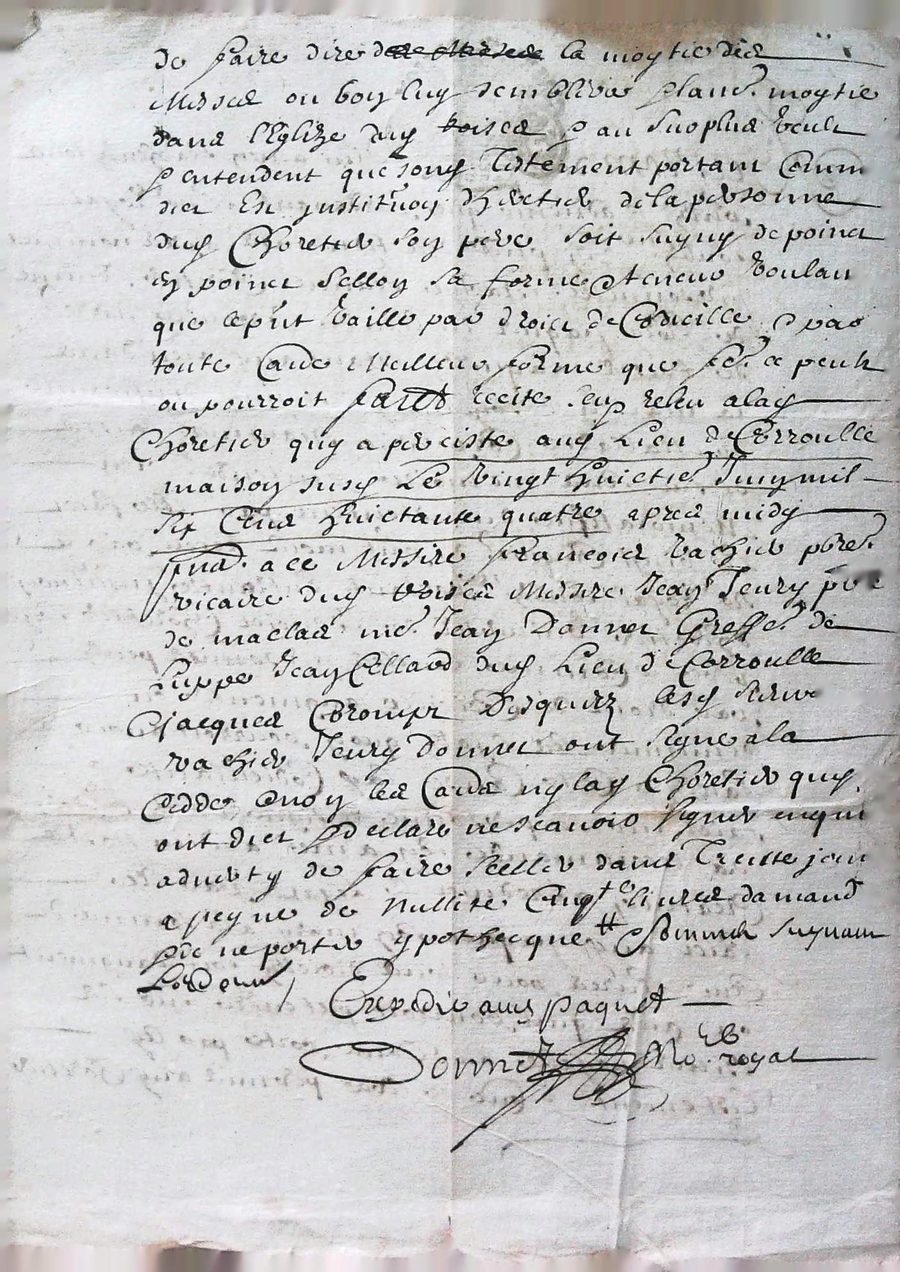 de faire dire la moytie des
Messes ou bon luy semblera moytie
dans l'Eglize dud & au surplus veult
& entendent que son Testement portant
dict En institution dheretier de la personne
dud Choretier son pere soit suyvy de poinct
en poinct sellon sa forme & teneur voulant
que le pnt vaille par droict de Codicille & par
toute meilleur forme que peult
ou pourroit faict recite leu & releu alad
Choretier quy a percisté aud Lieu de Corroulle
maison susd Le vingt huictie Juing mil
six Cens huictante quatre apres midy
a ce Messire Francois Vachier pbre
vicaire dud Messire Jean Jeury
de maclas me Jean Donnet Greffe de
Luppe Jean Cellard dud Lieu de Corroulle
& Jacques lesd sieurs
Vachier Jeury Donnet ont signe a la
Cedde & non les ny lad Choretier quy
ont dict & declare ne scavoir signer enquis
adverty de faire seeller dans Trente jour
a peyne de nullite Cinqte livres damand
& de ne porter ypothecque Sommeh suyvant
Lordonn
Expedie aud paquet
Donnet No.re royal